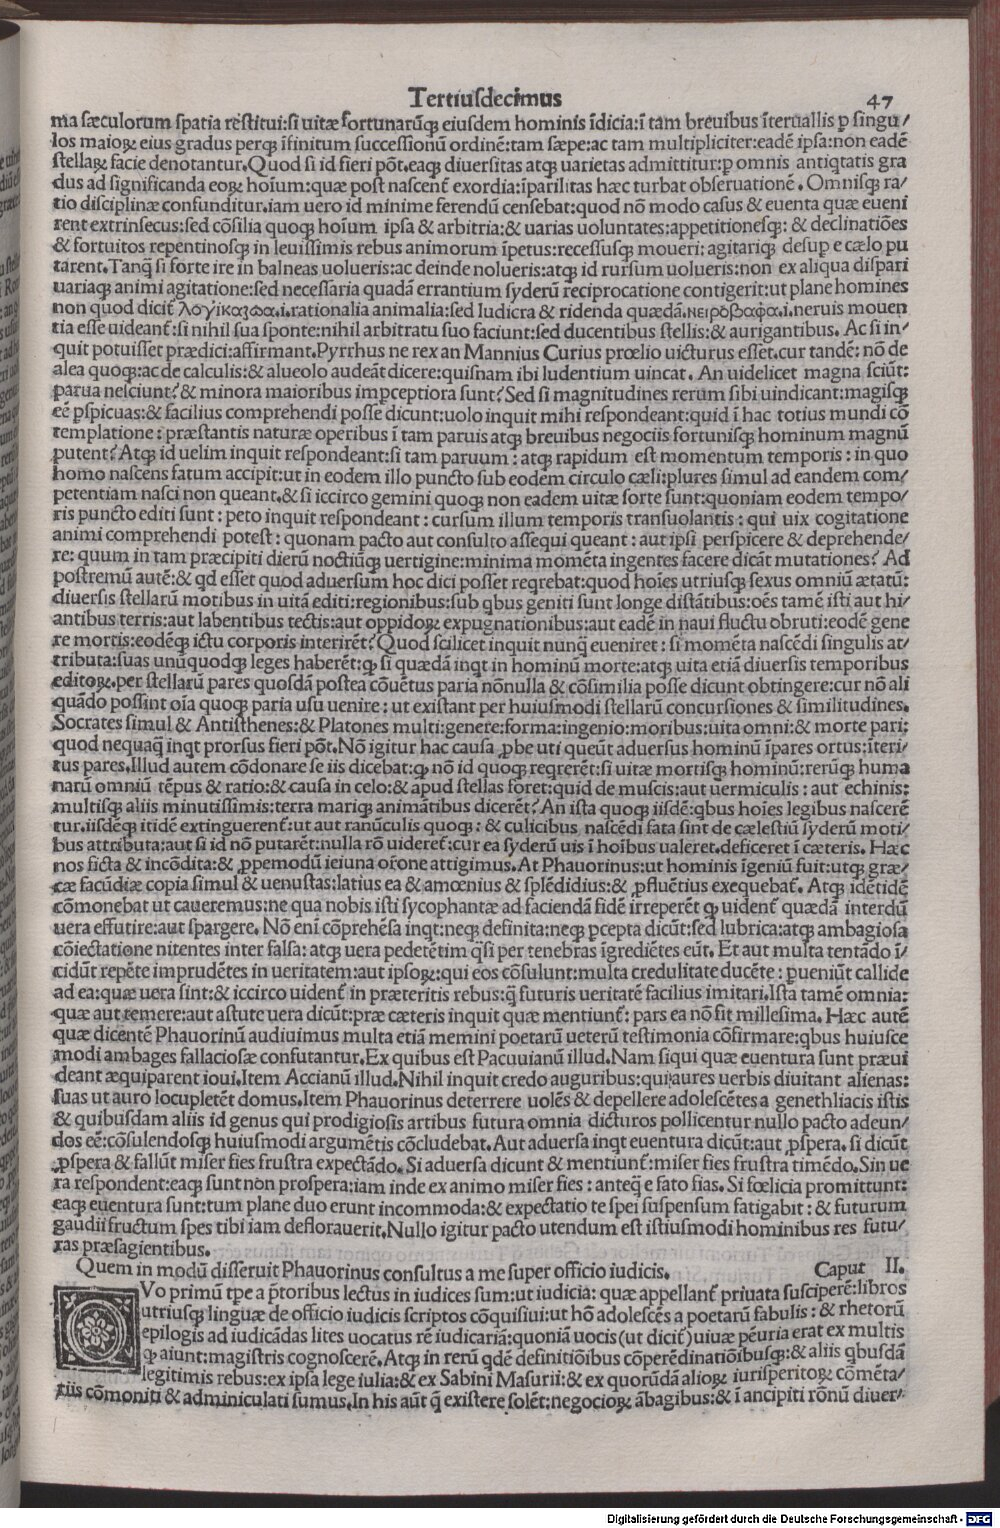 Tertiusdecimus 47
ma sæculorum spatia restitui:si uitæ fortunarūq; eiusdem hominis īdicia:ī tam breuibus īteruallis ꝑ singu/
los maioꝝ eius gradus perq; īfinitum successionū ordinē:tam sæpe:ac tam multipliciter:eadē ipsa:non eadē
stellaꝝ facie denotantur.Quod si id fieri pōt.eaq; diuersitas atq; uarietas admittitur:ꝑ omnis antiqtatis gra
dus ad significanda eoꝝ hoīum:quæ post nascent̄ exordia:īparilitas hæc turbat obseruationē.Omnisq; ra/
tio disciplinæ confunditur.iam uero id minime ferendū censebat:quod nō modo casus & euenta quæ eueni
rent extrinsecus:sed cōsilia quoq; hoīum ipsa & arbitria:& uarias uoluntates:appetitionesq;: & declinatiōes
& fortuitos repentinosq; in leuissimis rebus animorum īpetus:recessusq; moueri; agitariq; desup e cælo pu
tarent.Tanq̄ si forte ire in balneas uolueris:ac deinde nolueris:atq; id rursum uolueris:non ex aliqua dispari
uariaq; animi agitatione:sed necessaria quadā errantium syderū reciprocatione contigerit:ut plane homines
non quod dicit̄ λογίκαζωα.i.rationalia animalia:sed ludicra & ridenda quædā.νειρόβαφα.i.neruis mouen
tia esse uideant̄:si nihil sua sponte:nihil arbitratu suo faciunt:sed ducentibus stellis:& aurigantibus. Ac si in/
quit potuisset prædici:affirmant.Pyrrhus ne rex an Mannius Curius prœlio uicturus esset.cur tandē: nō de
alea quoq;:ac de calculis:& alueolo audeāt dicere:quisnam ibi ludentium uincat. An uidelicet magna sciūt:
parua nesciunt?& minora maioribus imꝑceptiora sunt?Sed si magnitudines rerum sibi uindicant:magisq;
eē ꝑspicuas:& facilius comprehendi posse dicunt:uolo inquit mihi respondeant:quid ī hac totius mundi cō
templatione : præstantis naturæ operibus ī tam paruis atq; breuibus negociis fortunisq; hominum magnū
putent?Atq; id uelim inquit respondeant:si tam paruum : atq; rapidum est momentum temporis : in quo
homo nascens fatum accipit:ut in eodem illo puncto sub eodem circulo cæli:plures simul ad eandem com/
petentiam nasci non queant.& si iccirco gemini quoq; non eadem uitæ sorte sunt:quoniam eodem tempo/
ris puncto editi sunt : peto inquit respondeant : cursum illum temporis transuolantis : qui uix cogitatione
animi comprehendi potest : quonam pacto aut consulto assequi queant : aut ipsi perspicere & deprehende/
re: quum in tam præcipiti dierū noctiūq; uertigine:minima momēta ingentes facere dicāt mutationes? Ad
postremū autē:& qd esset quod aduersum hoc dici posset reqrebat:quod hoīes utriusq; sexus omniū ætatū:
diuersis stellarū motibus in uitā editi:regionibus:sub qbus geniti sunt longe distātibus:oēs tamē isti aut hi/
antibus terris:aut labentibus tectis:aut oppidoꝝ expugnationibus:aut eadē in naui fluctu obruti:eodē gene
re mortis:eodēq; ictu corporis interirēt?Quod scilicet inquit nunq̄ eueniret : si momēta nascēdi singulis at/
tributa:suas unūquodq; leges haberēt:ꝙ si quædā inqt in hominū morte:atq; uita etiā diuersis temporibus
editoꝝ.per stellarū pares quosdā postea cōuētus paria nōnulla & cōsimilia posse dicunt obtingere:cur nō ali
quādo possint oīa quoq; paria usu uenire : ut existant per huiusmodi stellarū concursiones & similitudines.
Socrates simul & Antisthenes:& Platones multi:genere:forma:ingenio:moribus:uita omni:& morte pari;
quod nequaq̄ inqt prorsus fieri pōt.Nō igitur hac causa ꝓbe uti queūt aduersus hominū īpares ortus:īteri/
tus pares.Illud autem cōdonare se iis dicebat:ꝙ nō id quoq; reqrerēt:si uitæ mortisq; hominū:rerūq; huma
narū omniū tēpus & ratio:& causa in celo:& apud stellas foret:quid de muscis:aut uermiculis : aut echinis:
multisq; aliis minutissimis:terra mariq; animātibus dicerēt?An ista quoq; iisdē:qbus hoīes legibus nascerē
tur.iisdēq; itidē extinguerent̄:ut aut ranūculis quoq; : & culicibus nascēdi fata sint de cælestiū syderū moti/
bus attributa:aut si id nō putarēt:nulla rō uideret̄:cur ea syderū uis ī hoībus ualeret.deficeret ī cæteris. Hæc
nos sicta & incōdita:& ꝓpemodū ieiuna orōne attigimus.At Phauorinus:ut hominis īgeniū fuit:utq; græ/
cæ facūdiæ copia simul & uenustas:latius ea & amœnius & splēdidius:& ꝓfluētius exequebat̄. Atq; idētidē
cōmonebat ut caueremus:ne qua nobis isti sycophantæ ad faciendā fidē irreperēt ꝙ uident̄ quædā interdū
uera effutire:aut spargere. Nō enī cōprehēsa inqt:neq; definita:neq; ꝑcepta dicūt:sed lubrica:atq; ambagiosa
cōiectatione nitentes inter falsa: atq; uera pedetētim q̄si per tenebras īgrediētes eūt. Et aut multa tentādo ī/
cidūt repēte imprudētes in ueritatem:aut ipsoꝝ:qui eos cōsulunt:multa credulitate ducēte : ꝑueniūt callide
ad ea:quæ uera sint:& iccirco uident̄ in præteritis rebus:q̄ futuris ueritatē facilius imitari.Ista tamē omnia:
quæ aut temere:aut astute uera dicūt:præ cæteris inquit quæ mentiunt̄ : pars ea nō fit millesima. Hæc autē
quæ dicentē Phauorinū audiuimus multa etiā memini poetarū ueterū testimonia cōfirmare:qbus huiusce
modi ambages fallaciosæ confutantur.Ex quibus est Pacuuianū illud.Nam siqui quæ euentura sunt præui
deant æquiparent ioui.Item Accianū illud.Nihil inquit credo auguribus:qui aures uerbis diuitant alienas:
suas ut auro locupletēt domus.Item Phauorinus deterrere uolēs & depellere adolescētes a genethliacis istis
& quibusdam aliis id genus qui prodigiosis artibus futura omnia dicturos pollicentur nullo pacto adeun/
dos eē:cōsulendosq; huiusmodi argumētis cōcludebat.Aut aduersa inqt euentura dicūt:aut ꝓspera. si dicūt
ꝓspera & fallūt miser fies frustra expectādo.Si aduersa dicunt & mentiunt̄:miser fies frustra timēdo.Sin ue
ra respondent:eaq; sunt non prospera:iam inde ex animo miser fies : anteq̄ e fato fias. Si fœlicia promittunt:
eaq; euentura sunt:tum plane duo erunt incommoda:& expectatio te spei suspensum fatigabit : & futurum
gaudii fructum spes tibi iam deflorauerit.Nullo igitur pacto utendum est istiusmodi hominibus res futu/
ras præsagientibus.
Quem in modū disseruit Phauorinus consultus a me super officio iudicis. Caput II.
QVo primū tꝑe a p̄toribus lectus in iudices sum:ut iudicia: quæ appellant̄ priuata susciperē:libros
utriusq; linguæ de officio iudicis scriptos cōquisiui:ut hō adolescēs a poetarū fabulis : & rhetorū
epilogis ad iudicādas lites uocatus rē iudicariā:quoniā uocis(ut dicit̄)uiuæ pēuria erat ex multis
ꝙ aiunt:magistris cognoscerē.Atq; in rerū qdē definitiōibus cōperēdinatiōibusq;:& aliis qbusdā
legitimis rebus:ex ipsa lege iulia:& ex Sabini Masurii:& ex quorūdā alioꝝ iurisperitoꝝ cōmēta/
riis cōmoniti & adminiculati sumus.In his aūt q̄ existere solēt:negocioꝝ ābagibus:& ī ancipiti rōnū diuer/
Digitalisierung gefördert durch die Deutsche Forschungsgemeinschaft - DFG